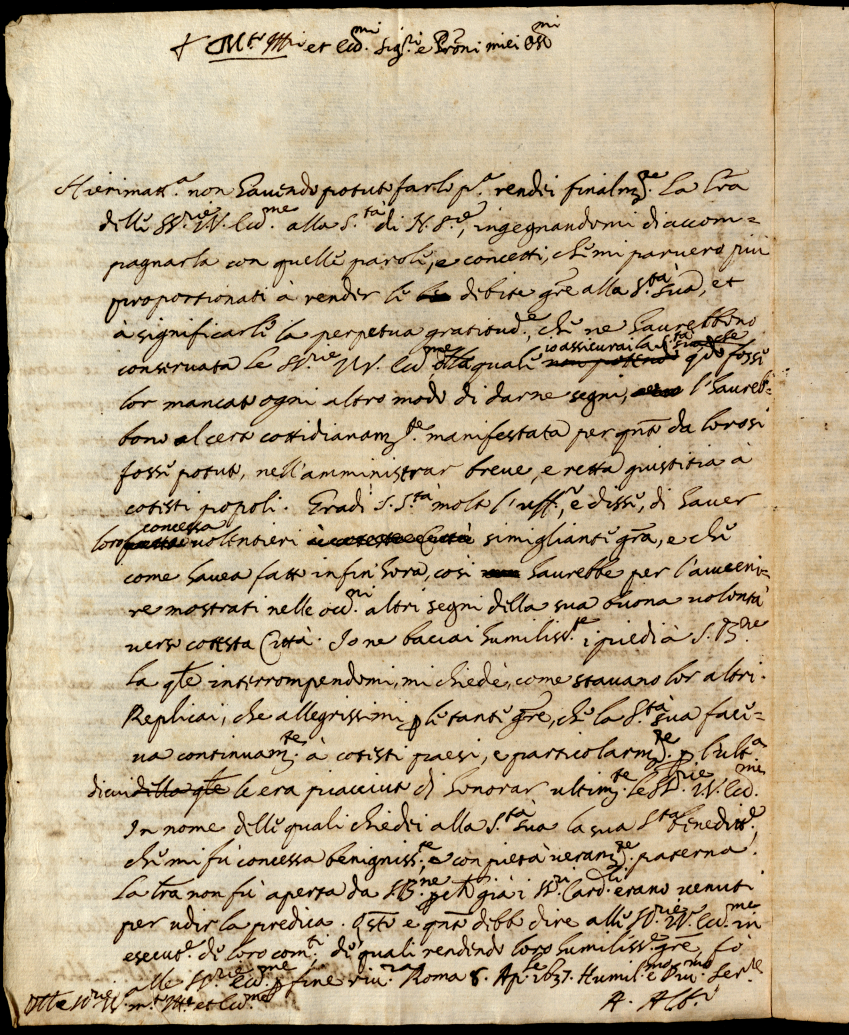 Mto Illri et Ecc.mi Sig.ri e Proni miei Oss.mi
Hierimatt.a non havendo potuto farlo p.a rendei finalm.te la lra
delle SS.rie VV. Ecc.me alla S.tà di N. S.re, ingegnandomi di accom=
pagnarla con quelle parole, e concetti, che mi parvero più
proportionati à render le debite gre alla S.tà sua, et
à significarli la perpetua gratitud.e, che ne haurebbino
conservata le SS.rie VV. Ecc.me alla quale io assicurai la S.tà sua che qdo fosse
lor mancato ogni altro modo di darne segni, l'haureb=
bono al certo cottidianam.te manifestata per qnto da loro si
fosse potuto, nell'amministrar breve, e retta giustitia à
cotesti popoli. Gradì S. S.tà molto l'uff.o, e disse, di haver
loro concessa volentieri simigliante gra, e che
come havea fatto infin hora, così haurebbe per l'avveni=
re mostrati nelle occ.ni altri segni della sua buona volontà
verso cotesta Città. Io ne baciai humiliss.te i piedi à S. B.ne
la qle interrompendomi, mi chiedè, come stavano lor altri.
Replicai, che allegrissimi p le tante gre, che la S.tà sua face=
va continuam.te à cotesti paesi, e particolarm.te p l'ult.a
di cui le era piacciuto di honorar ultim.te le SS.rie VV. Ecc.me
In nome delle quali chiedei alla S.tà sua la sua S.ta beneditt.e,
che mi fù concessa benigniss.te, e con pietà veram.te paterna.
La lra non fù aperta da S. B.ne pchè già i SS.ri Card.li erano venuti
per udir la predica. Qsto è qnto debbo dire alle SS.rie VV. Ecc.me in
esecut.e de loro com.ti, de quali rendendo loro humiliss.e gre, fò
alle SS.rie Ecc.me p fine riv.za Roma 8. Ap.le 1637. Humil.mo e Div.mo Ser.re
Delle SS.rie VV. m.to Ill.ri et Ecc.me
A. Albi